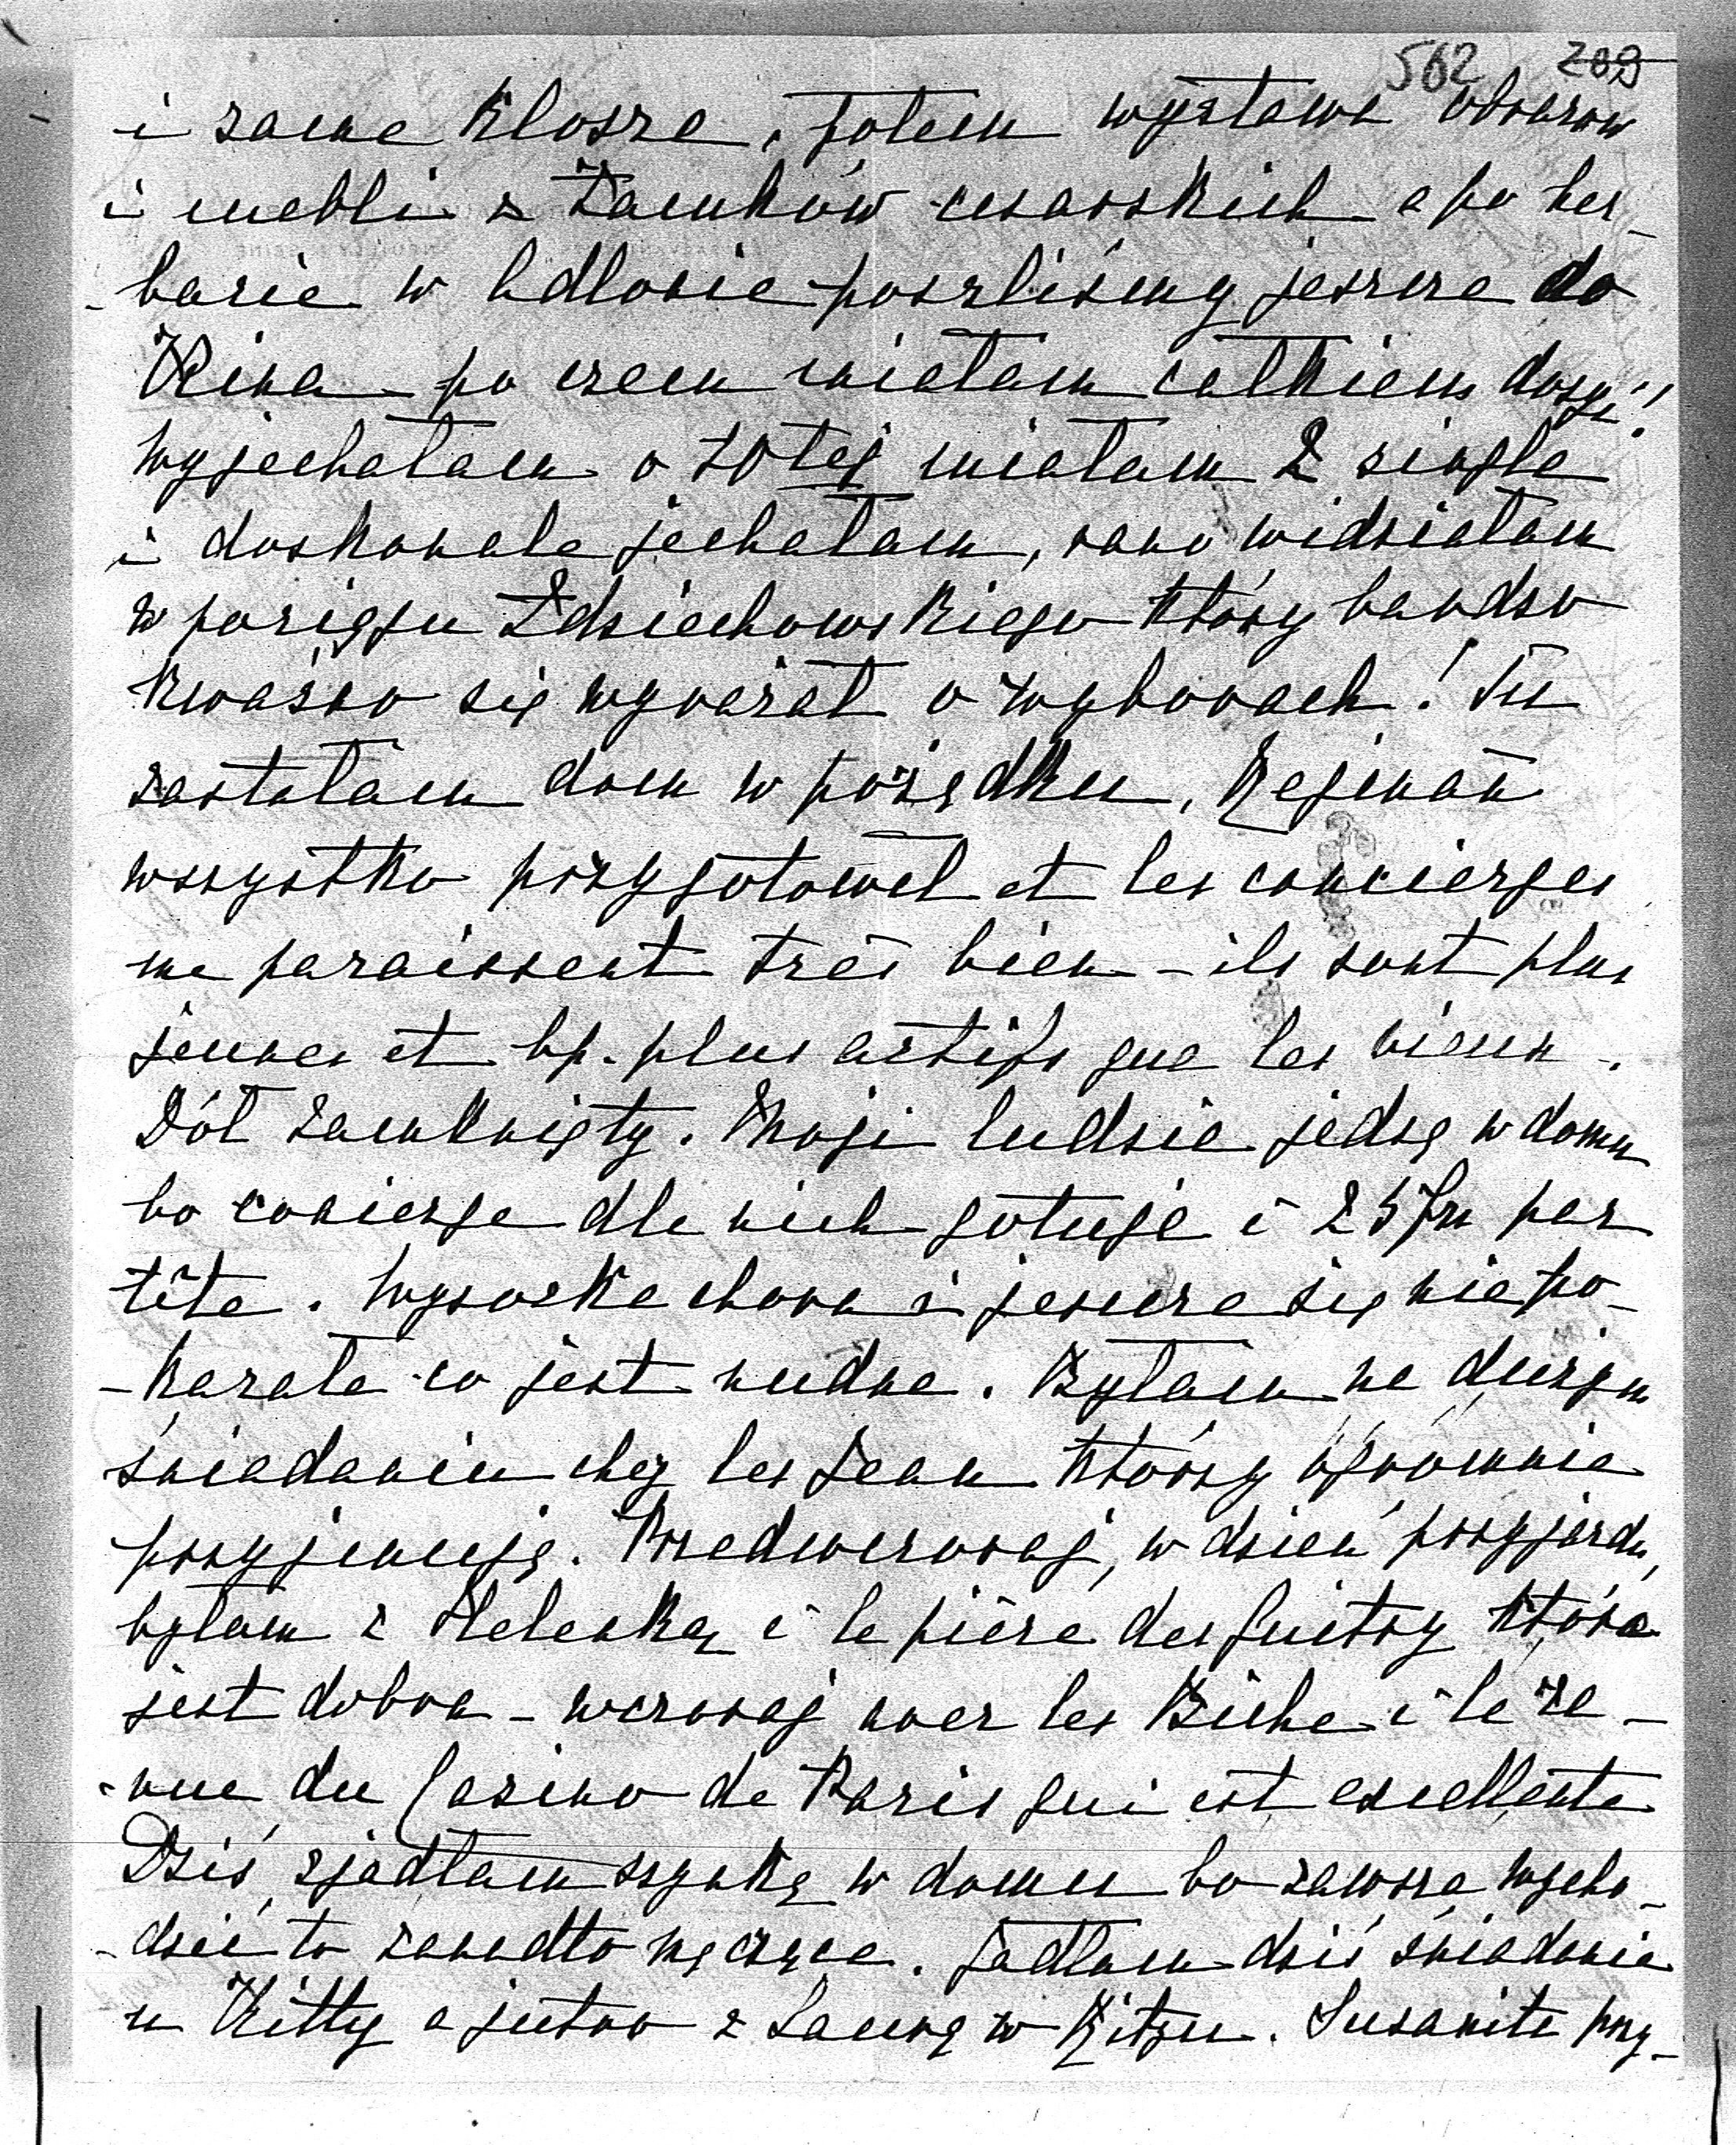 562 209
i same klosze, potem wystawa obrazów
i mebli z Zamków cesarskich a po her-
-bacie w Adlonie poszliśmy jeszcze do
Kina - po czem miałam całkiem dosyć!
Wyjechałam o 10tej miałam 2 single
i doskonale jechałam, rano widziałam
w pociągu Zdziechowskiego który bardzo
kwaśno się wyrażał o wyborach! Tu
zastałam dom w pożądku,
wszystko przygotował et les concierges
me paraissent très bien - ils sont plus
jeunes et bp. plus actifs que les vieux.
Dół zamknięty. Moji ludzie jedzą w domu
bo concierge dla nich gotuje à 25 fr par
tête. Wysocka chora i jeszcze się nie po-
-kazała co jest nudne. Byłam na dużym
śniadaniu chez les Jean którzy ogromnie
przyjmują. Przedwczoraj, w dzień przyjazdu,
byłam z Helenką à la pièce des Guitry która
jest dobra - wczoraj avec les Biche à la re-
-vue du Casino de Paris qui est excellente
Dziś zjadłam szynkę w domu bo zawsze wycho-
-dzić to zanadto męczące. Jadłam dziś śniadanie
u Kitty a jutro z w Ritzu. Susanita przy-